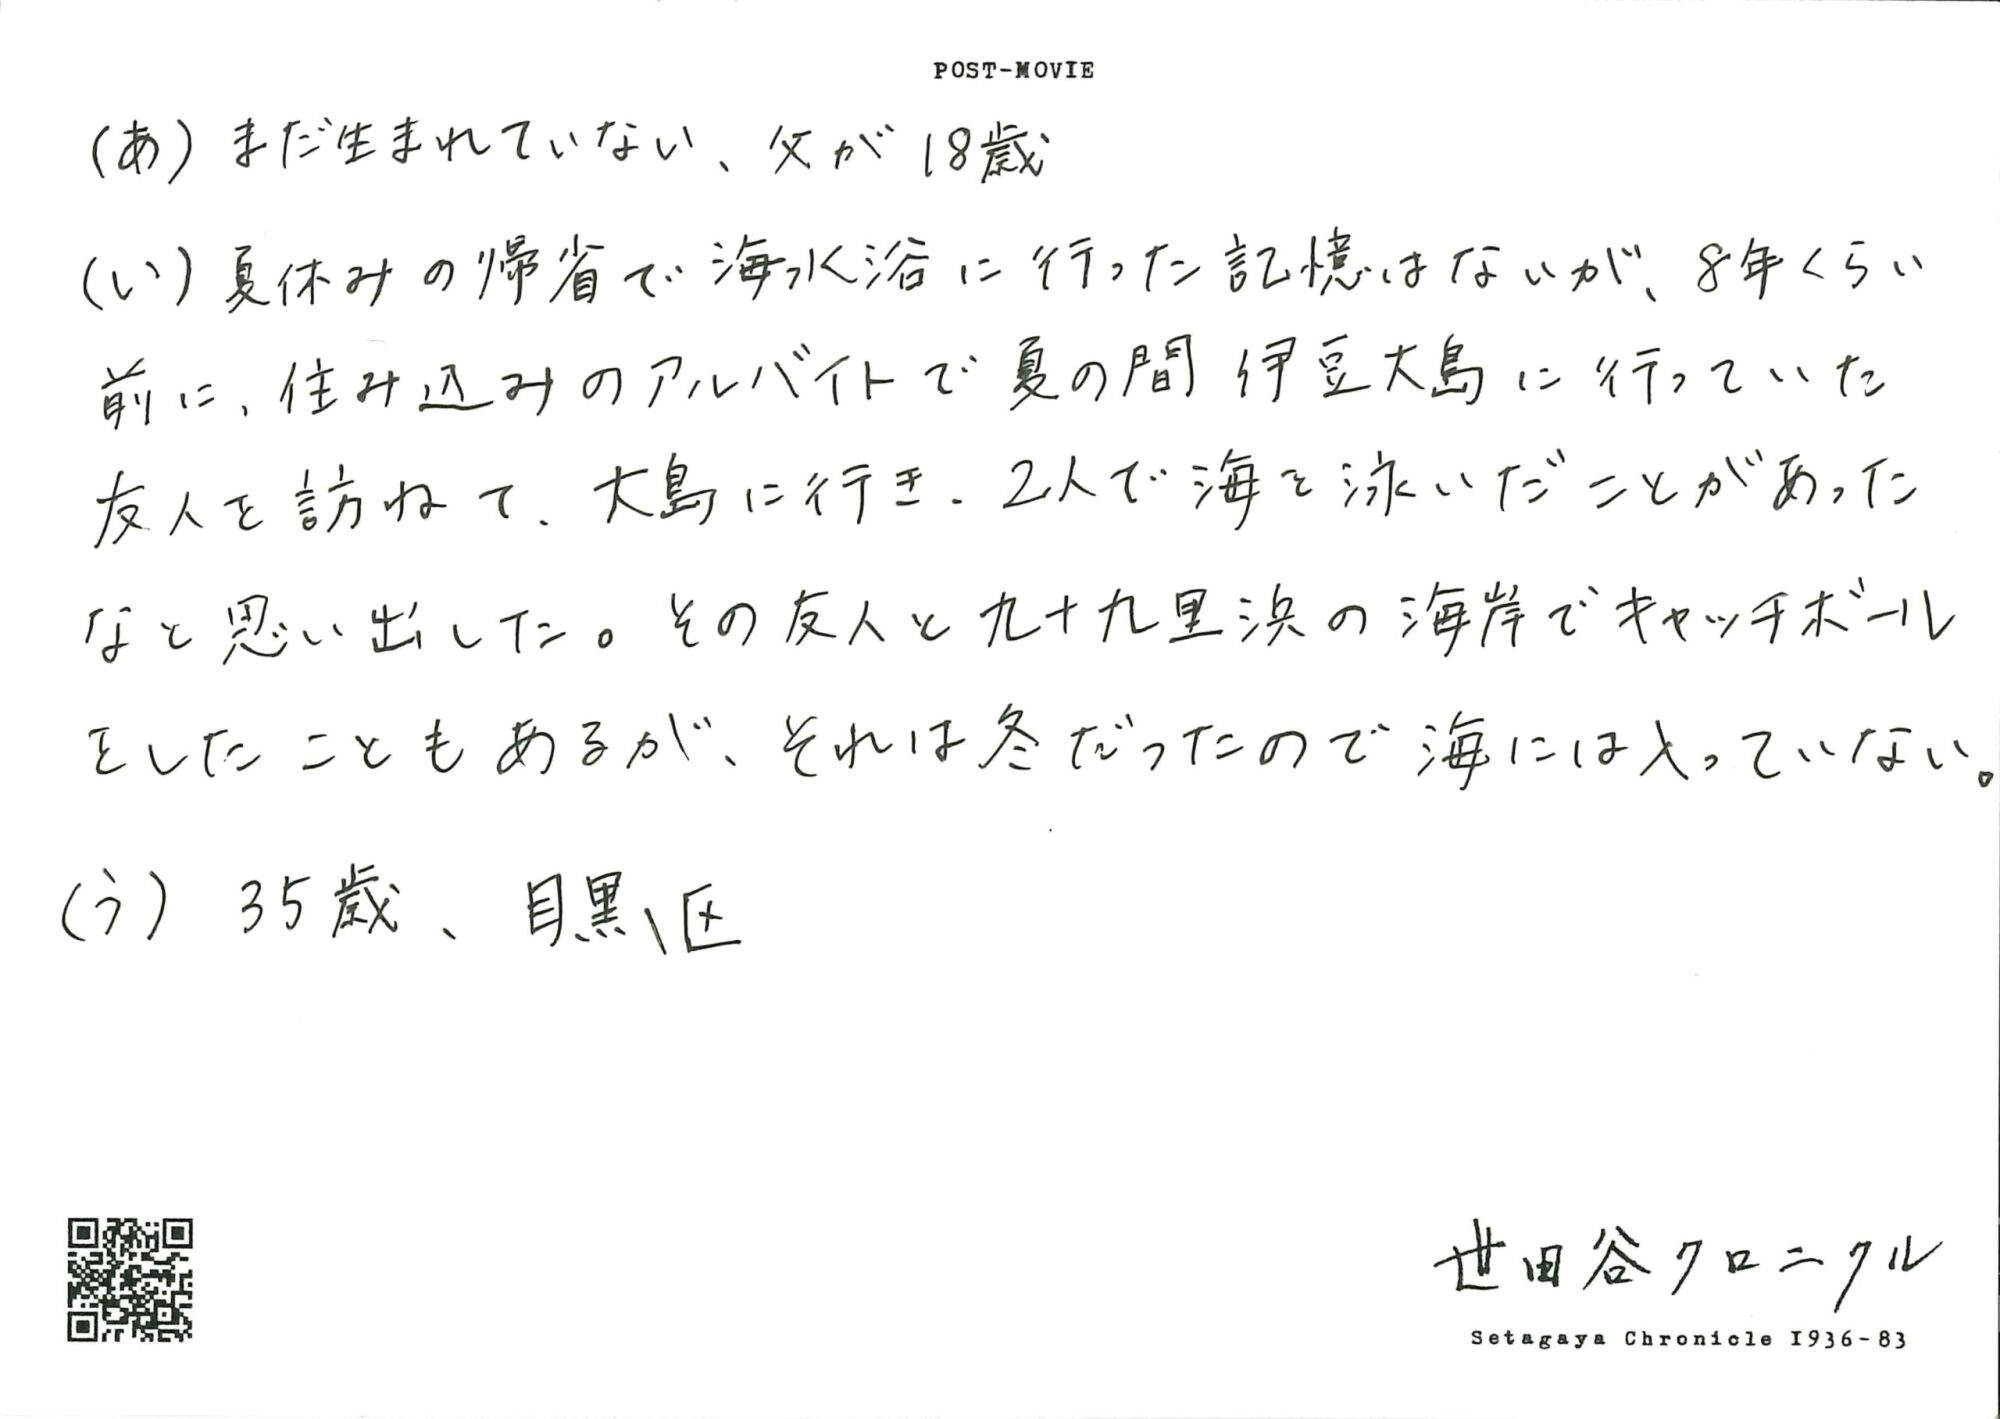 POST-MOVIE
(あ) まだ生まれていない、父が18歳
(い) 夏休みの帰省で海水浴に行った記憶はないが、8年くらい
前に、住み込みのアルバイトで夏の間 伊豆大島に行っていた
友人を訪ねて、大島に行き、2人で海を泳いだことがあった
なと思い出した。その友人と九十九里浜の海岸でキャッチボール
をしたこともあるが、それは冬だったので海には入っていない。
(う) 35歳、目黒区
世田谷クロニクル
Setagaya Chronicle 1936-83